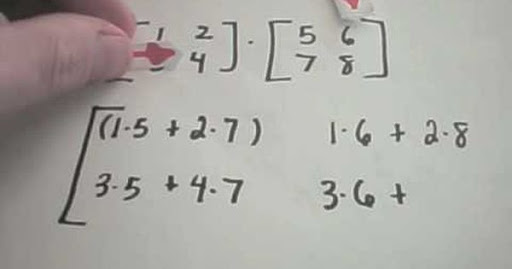 [1 2 4] · [5 6 7 8]
(1·5 + 2·7) 1·6 + 2·8
3·5 + 4·7 3·6 +